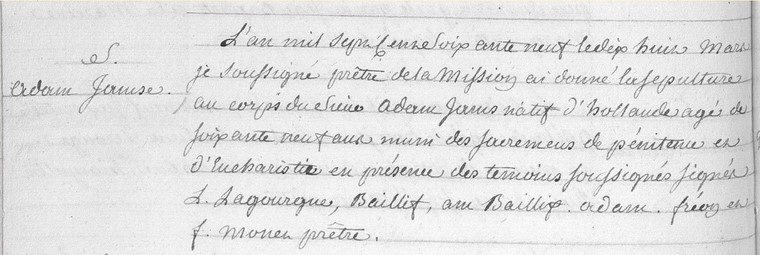 S.
Adam Jamse.
L'an mil sept cenn Soixante neuf le dix huin Mars
je soussigné prêtre de la Mission ai donné la sepulture
au corps du Sieur Adam Jams natif d'hollande agé de
soixante neuf ans muni des sacremens de pénitence en
d'Eucharistie en présence des temoins soussignés signés
L. Lagourgue, Baillif, am Baillif. adam. fréon en
f. Monen prêtre.